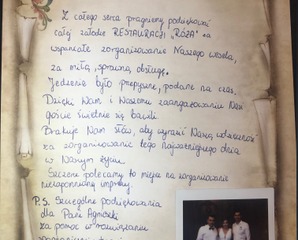 Z całego serca pragniemy podziękować
całej załodze RESTAURACJI „RÓŻA" za
wspaniałe zorganizowanie Naszego wesela,
za miłą, sprawną obsługę.
Jedzenie było przepyszne, podane na czas.
Dzięki Wam i Waszemu zaangażowaniu Nasi
goście świetnie się bawili.
Brakuje Nam słów, aby wyrazić Naszą wdzięczność
za zorganizowanie tego najważniejszego dnia
w Naszym życiu.
Szczerze polecamy to miejsce na zorganizowanie
niezapomnianej imprezy.
P.S. Szczególne podziękowania
dla Pani Agnieszki
za pomoc w rozwiązaniu